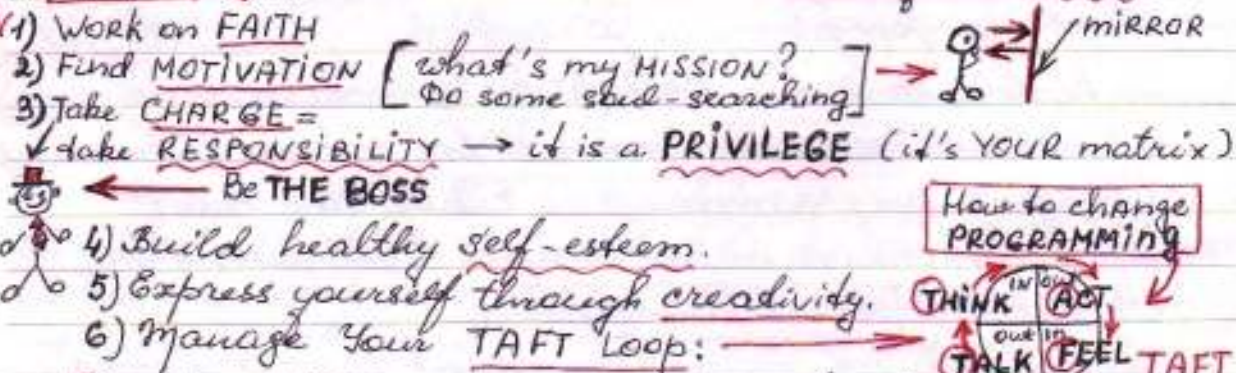 1) WORK on FAITH
2) Find MOTIVATION [what's my MISSION?
Do some soul-searching]
MIRROR
3) Take CHARGE =
take RESPONSIBILITY → it is a PRIVILEGE (it's YOUR matrix)
← Be THE BOSS
4) Build healthy self-esteem.
5) Express yourself through creativity.
6) Manage Your TAFT Loop:
How to change
PROGRAMMING
THINK IN OUT ACT
TALK OUT IN FEEL TAFT